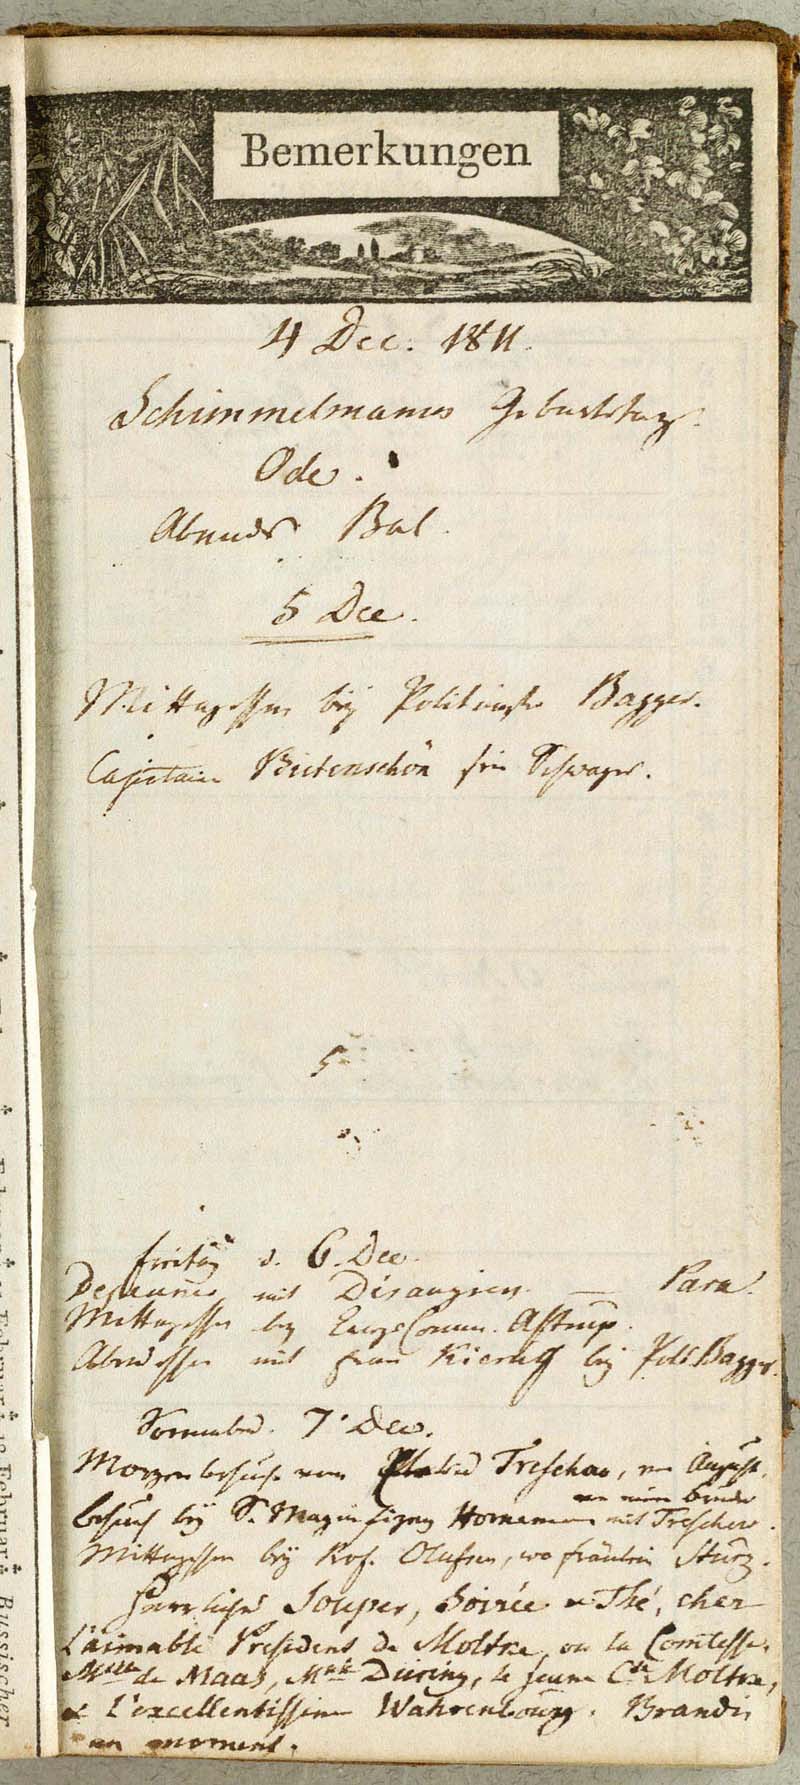 Bemerkungen
4 Dec. 1811.
Schimmelmanns Geburtstag.
Ode.
Abends Bal.
5 Dec.
Mittagessen bey Politimstr Bagger.
Capitain Bietenschön sein Schwager.
5
Freitag d. 6. Dec.
Dejeuner mit Désaugiers — Para
Mittagessen bey Astrup.
Abendessen mit Frau Kierulf bey Polit. Bagger.
Sonnabend. 7. Dec.
Morgenbesuch von Treschow, von August.
Besuch bey S. Magnifizenz Hornemann mit Treschow.
Mittagessen bey Prof. Olufsen, wo Fräulein Sturz.
Herrliches Souper, Soirée u Thé, chez
L'aimable President de Moltke, ou la Comtesse,
Mlle de Maas, Düring, le jeune Cte Moltke,
& l'excellentissime Wahrenbourg. Brandis
un moment.
Februar
Februar
Russischer